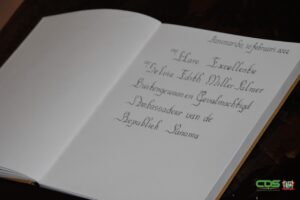 Paramaribo, 10 februari 2022
Hare Excellentie
Delvia Edith Miller Palmer
Buitengewoon en Gevolmachtigd
Ambassadeur van de
Republiek Panama
CDS